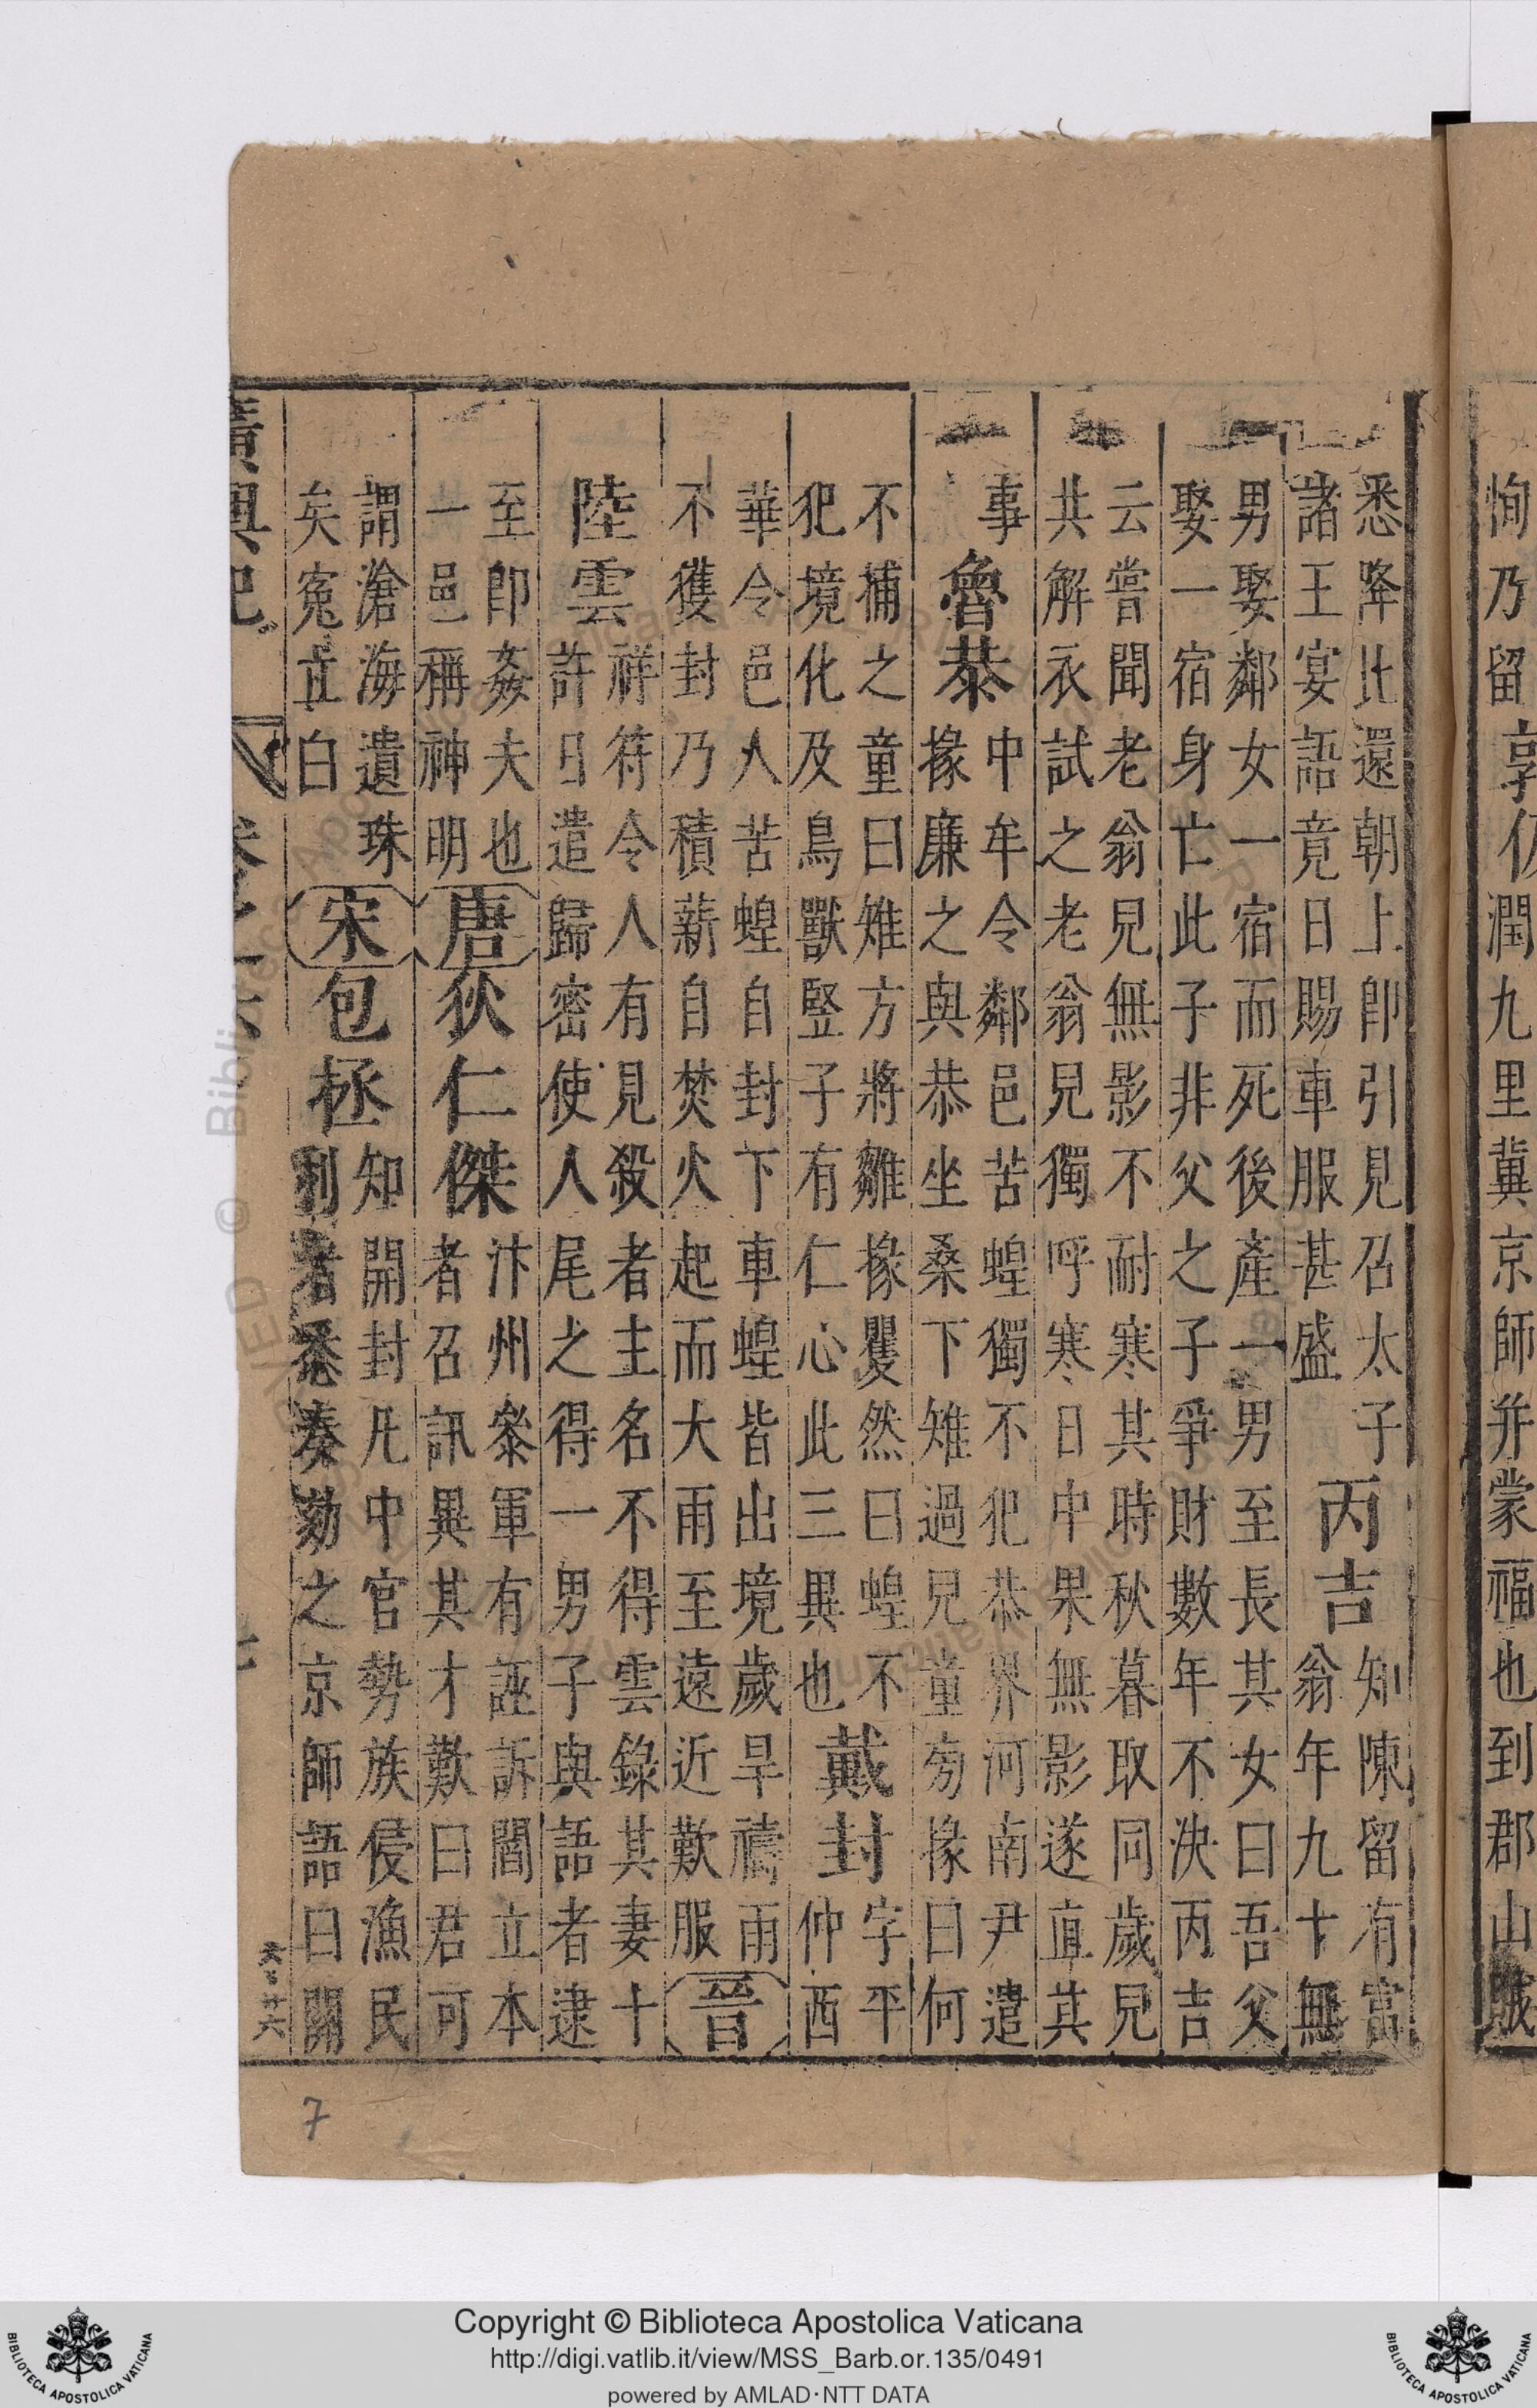 恂乃留
享
潤九里冀京師并蒙福也到郡山賊
悉降比還朝上卽引見召太子
諸王宴語竟日賜車服甚盛
丙吉
知陳留有富
翁年九十無
男娶鄰女一宿而死後產一男至長其女曰吾父
娶一宿身亡此子非父之子爭財數年不決丙吉
云嘗聞老翁兒無影不耐寒其時秋暮取同歲兒
共解衣試之老翁兒獨呼寒日中果無影遂直其
事
魯恭
中牟令鄰邑苦蝗獨不犯恭界河南尹遣
掾廉之與恭坐桑下雉過兒童旁掾曰何
不捕之童曰雉方將雛掾矍然曰蝗不
犯境化及鳥獸豎子有仁心此三異也
戴封
字平
仲西
華令邑人苦蝗自封下車蝗皆出境歲旱禱雨
不獲封乃積薪自焚火起而大雨至遠近歎服
晉
陸雲
祥符令人有見殺者主名不得雲錄其妻十
許日遣歸密使人尾之得一男子與語者逮
至卽姦夫也
一邑稱神明
唐
狄仁傑
汴州叅軍有誣訴閻立本
者召訊異其才歎曰君可
謂滄海遺珠
矣寃立白
宋
包拯
知開封凡中官勢族侵漁民
利者悉奏劾之京師語曰關
廣輿記
卷之六
七
六十六
7
Copyright © Biblioteca Apostolica Vaticana
http://digi.vatlib.it/view/MSS_Barb.or.135/0491
powered by AMLAD·NTT DATA
BIBLIOTECA APOSTOLICA VATICANA
BIBLIOTECA APOSTOLICA VATICANA